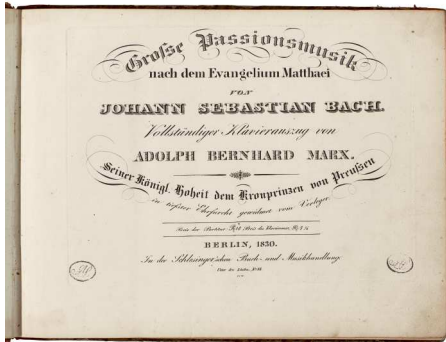 Grosse Passionsmusik
nach dem Evangelium Matthaei
VON
JOHANN SEBASTIAN BACH.
Vollständiger Klavierauszug von
ADOLPH BERNHARD MARX.
Seiner Königl. Hoheit dem Kronprinzen von Preußen
in tiefster Ehrfurcht gewidmet vom Verleger
Preis der Partitur
BERLIN, 1830.
In der Schlesinger'schen Buch- und Musikhandlung.